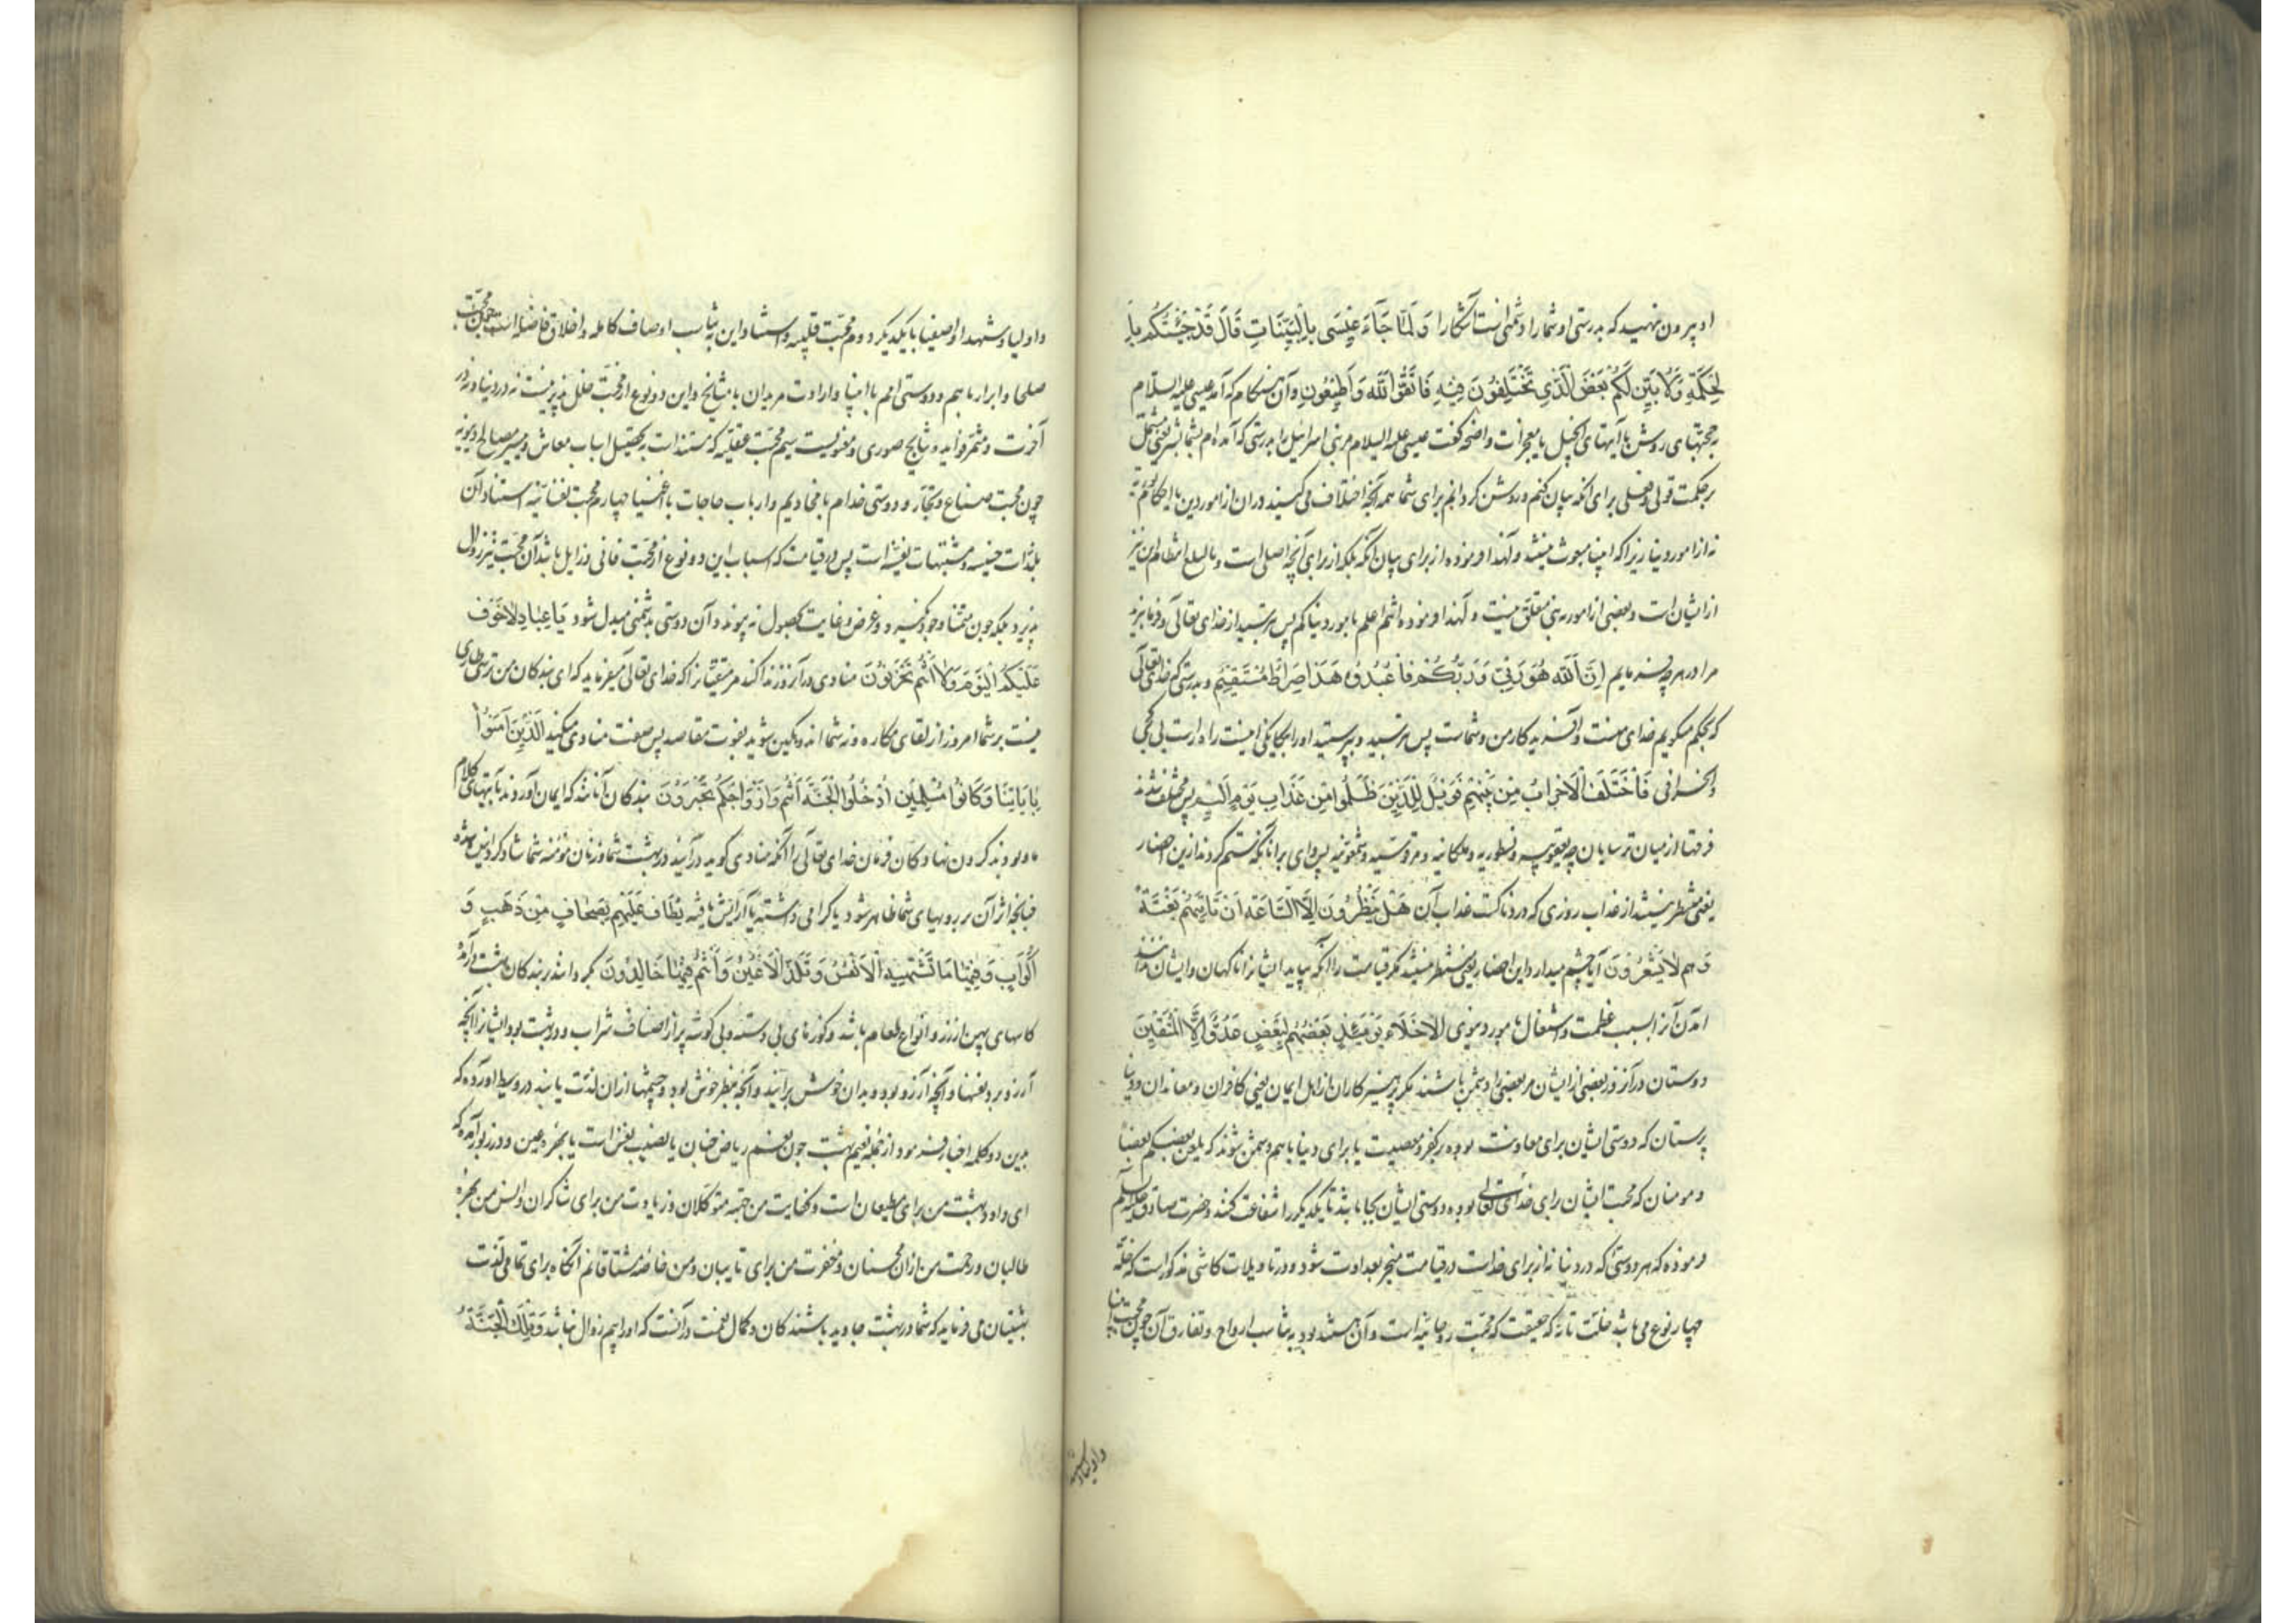 او بیرون نهید که بدرستی او شما را دشمنی است آشکارا وَ لَمَّا جَآءَ عِیسَی بِالبَیِّنَاتِ قَالَ قَدْ جِئْتُکُم بِا
لْحِکْمَةِ وَلِاُبَیِّنَ لَکُمْ بَعْضَ الَّذِی تَخْتَلِفُونَ فِیهِ فَاتَّقُوا اللّٰهَ وَأَطِیعُونِ و آن هنکام که آمد عیسی علیه السلام
بحجتهای روشن یا آیتهای انجیل یا معجزات واضحه کفت عیسی علیه السلام مر بنی اسرائیل را بدرستی که آمده‌ام بشما بشریعتی مشتمل
بر حکمت قولی و فعلی برای آنکه بیان کنم و روشن کردانم برای شما همه آنچه اختلاف می‌کنید در آن از امور دین یا احکام توریة
نه از امور دنیا زیرا که انبیا مبعوث نیستند و لهذا فرموده از برای بیان آنکه بلکه از برای آنچه اصلی است
از ایشان است و بعضی از امور به نبی متعلق نیست و لهذا فرموده انتم اعلم بامور دنیاکم پس بترسید از خدای تعالی و فرمان برید
مرا در هر چه فرمایم اِنَّ اللّٰهَ هُوَ رَبِّی وَ رَبُّکُمْ فَاعْبُدُوهُ هَذَا صِرَاطٌ مُسْتَقِیمٌ و بدرستی که خدای تعالی
که بحکم میکویم خدای منست و آفریدکار من و شماست پس بترسید و بپرستید او را بیکانکی اینست راه راست بی کجی
و انحرافی فَاخْتَلَفَ الْاَحْزَابُ مِن بَیْنِهِمْ فَوَیْلٌ لِلَّذِینَ ظَلَمُوا مِن عَذَابِ یَوْمٍ اَلِیمٍ پس مختلف شدند
فرقتها از میان ترسایان چه یعقوبیه و نسطوریه و ملکانیه و مرقوسیه و شمعونیه پس وای بر آنانکه ستم کردند ازین احضار
یعنی منتظر نیستند از عذاب روزی که دردناکست عذاب آن هَلْ یَنْظُرُونَ اِلَّا السَّاعَةَ اَنْ تَأْتِیَهُمْ بَغْتَةً
وَ هُم لَا یَشْعُرُونَ آیا چشم میدارد این احضار یعنی منتظر نیستند مکر قیامت را آنکه بیاید ایشانرا ناکهان و ایشان ندانند
آمدن آنرا بسبب غفلت و اشتغال بامور دنیوی اَلْاَخِلَّاءُ یَوْمَئِذٍ بَعْضُهُمْ لِبَعْضٍ عَدُوٌّ اِلَّا الْمُتَّقِینَ
دوستان در آنروز بعضی از ایشان مر بعضی را دشمن باشند مکر پرهیزکاران از اهل ایمان یعنی کافران و معاندان و دنیا
پرستان که دوستی ایشان برای معاونت بوده بر کفر و معصیت یا برای دنیا با هم دشمن شوند که یلعن بعضکم بعضا
و مومنان که محبت ایشان برای خدای تعالی بوده دوستی ایشان بجا باشد تا یکدیکر را شفاعت کنند و حضرت صادق علیه السلام
فرموده که هر دوستی که در دنیا نه از برای خداست در قیامت منجر بعداوت شود و در تاویلات کاشی مذکور است که خلّه
چهار نوع می‌باشد خلّت تامّه که حقیقت که محبت روحانیه است و آن مستند بود به تناسب ارواح و تعارف آن چون محبت انبیا
و اولیا و شهدا
و اولیا و شهدا و اصفیا با یکدیکر دوم محبت قلبیه و استناد این به تناسب اوصاف کامله و اخلاق فاضله است چون محبت
صلحا و ابرار با هم و دوستی امم با انبیا و ارادت مریدان با مشایخ و این دو نوع از محبت خلل پذیر نیست نه در دنیا و نه در
آخرت و مثمر فواید و نتایج صوری و معنویست سیم محبت عقلیه که مستند است بتحصیل اسباب معاش و تیسیر مصالح دنیویه
چون محبت صناع و تجار و دوستی خدام با مخادیم و ارباب حاجات با اغنیا چهارم محبت نفسانیه استناد آن
بلذات حسیه و مشتهیات نفسیه است پس در قیامت که اسباب این دو نوع از محبت فانی و زایل باشد آن محبت نیز زوال
پذیرد بلکه چون متمنا وجود نکیرد و غرض و غایت بحصول نه پیوندد آن دوستی بدشمنی مبدل شود یَا عِبَادِ لَاخَوْفٌ
عَلَیْکُمُ الْیَوْمَ وَلَا اَنْتُمْ تَحْزَنُونَ منادی در آنروز ندا کند مر متقیانرا که خدای تعالی میفرماید که ای بندکان من ترسی طاری
نیست بر شما امروز از لقای مکاره و نه شما اندوهکین شوید بفوت مقاصد پس صفت منادی میکنید اَلَّذِینَ آمَنُوا
بِآیَاتِنَا وَ کَانُوا مُسْلِمِینَ اُدْخُلُوا الْجَنَّةَ اَنْتُم وَ اَزْوَاجُکُم تُحْبَرُونَ بندکان آنانند که ایمان آوردند بآیتهای کلام
ما و بودند کردن نهادکان فرمان خدای تعالی را آنکه منادی کوید درآیید در بهشت شما و زنان مؤمنه شما شاد کردانیده شده
چنانچه اثر آن بر رویهای شما ظاهر شود یا کرامی داشته یا آرایش یافته یُطَافُ عَلَیْهِم بِصِحَافٍ مِن ذَهَبٍ وَ
اَکْوَابٍ وَ فِیهَا مَا تَشْتَهِیهِ الْاَنْفُسُ وَ تَلَذُّ الْاَعْیُنُ وَ اَنْتُمْ فِیهَا خَالِدُونَ بکردانند بر بندکان بهشت درآمده
کاسهای پهن از زر و انواع طعام باشد و کوزهای بی دسته و بی کوشه پر از اصناف شراب و در بهشت بود ایشانرا آنچه
آرزو برد نفسها و آنچه آرزو بود و بدان خوش برآیند و آنچه بنظر خوش بود و چشمها از آن لذت یابند در وسیط آورده که
بدین دو کلمه اخبار فرمود از جمله نعیم بهشت چون نعیم ریاض جنان یا نصیب نفس است یا بهره عین و در زبور آمده که
ای داود بهشت من برای مطیعان است و کفایت من جهة متوکلان و زیادت من برای شاکران و انس من بهره
طالبان و رحمت من از آن محسنان و مغفرت من برای تایبان و من خاصه مشتاقانم آنکاه برای تمامی لذت
بهشتیان می فرماید که شما در بهشت جاوید باشندکان و کمال نعمت در آنست که او را بیم زوال نباشد وَ تِلْکَ الْجَنَّةُ